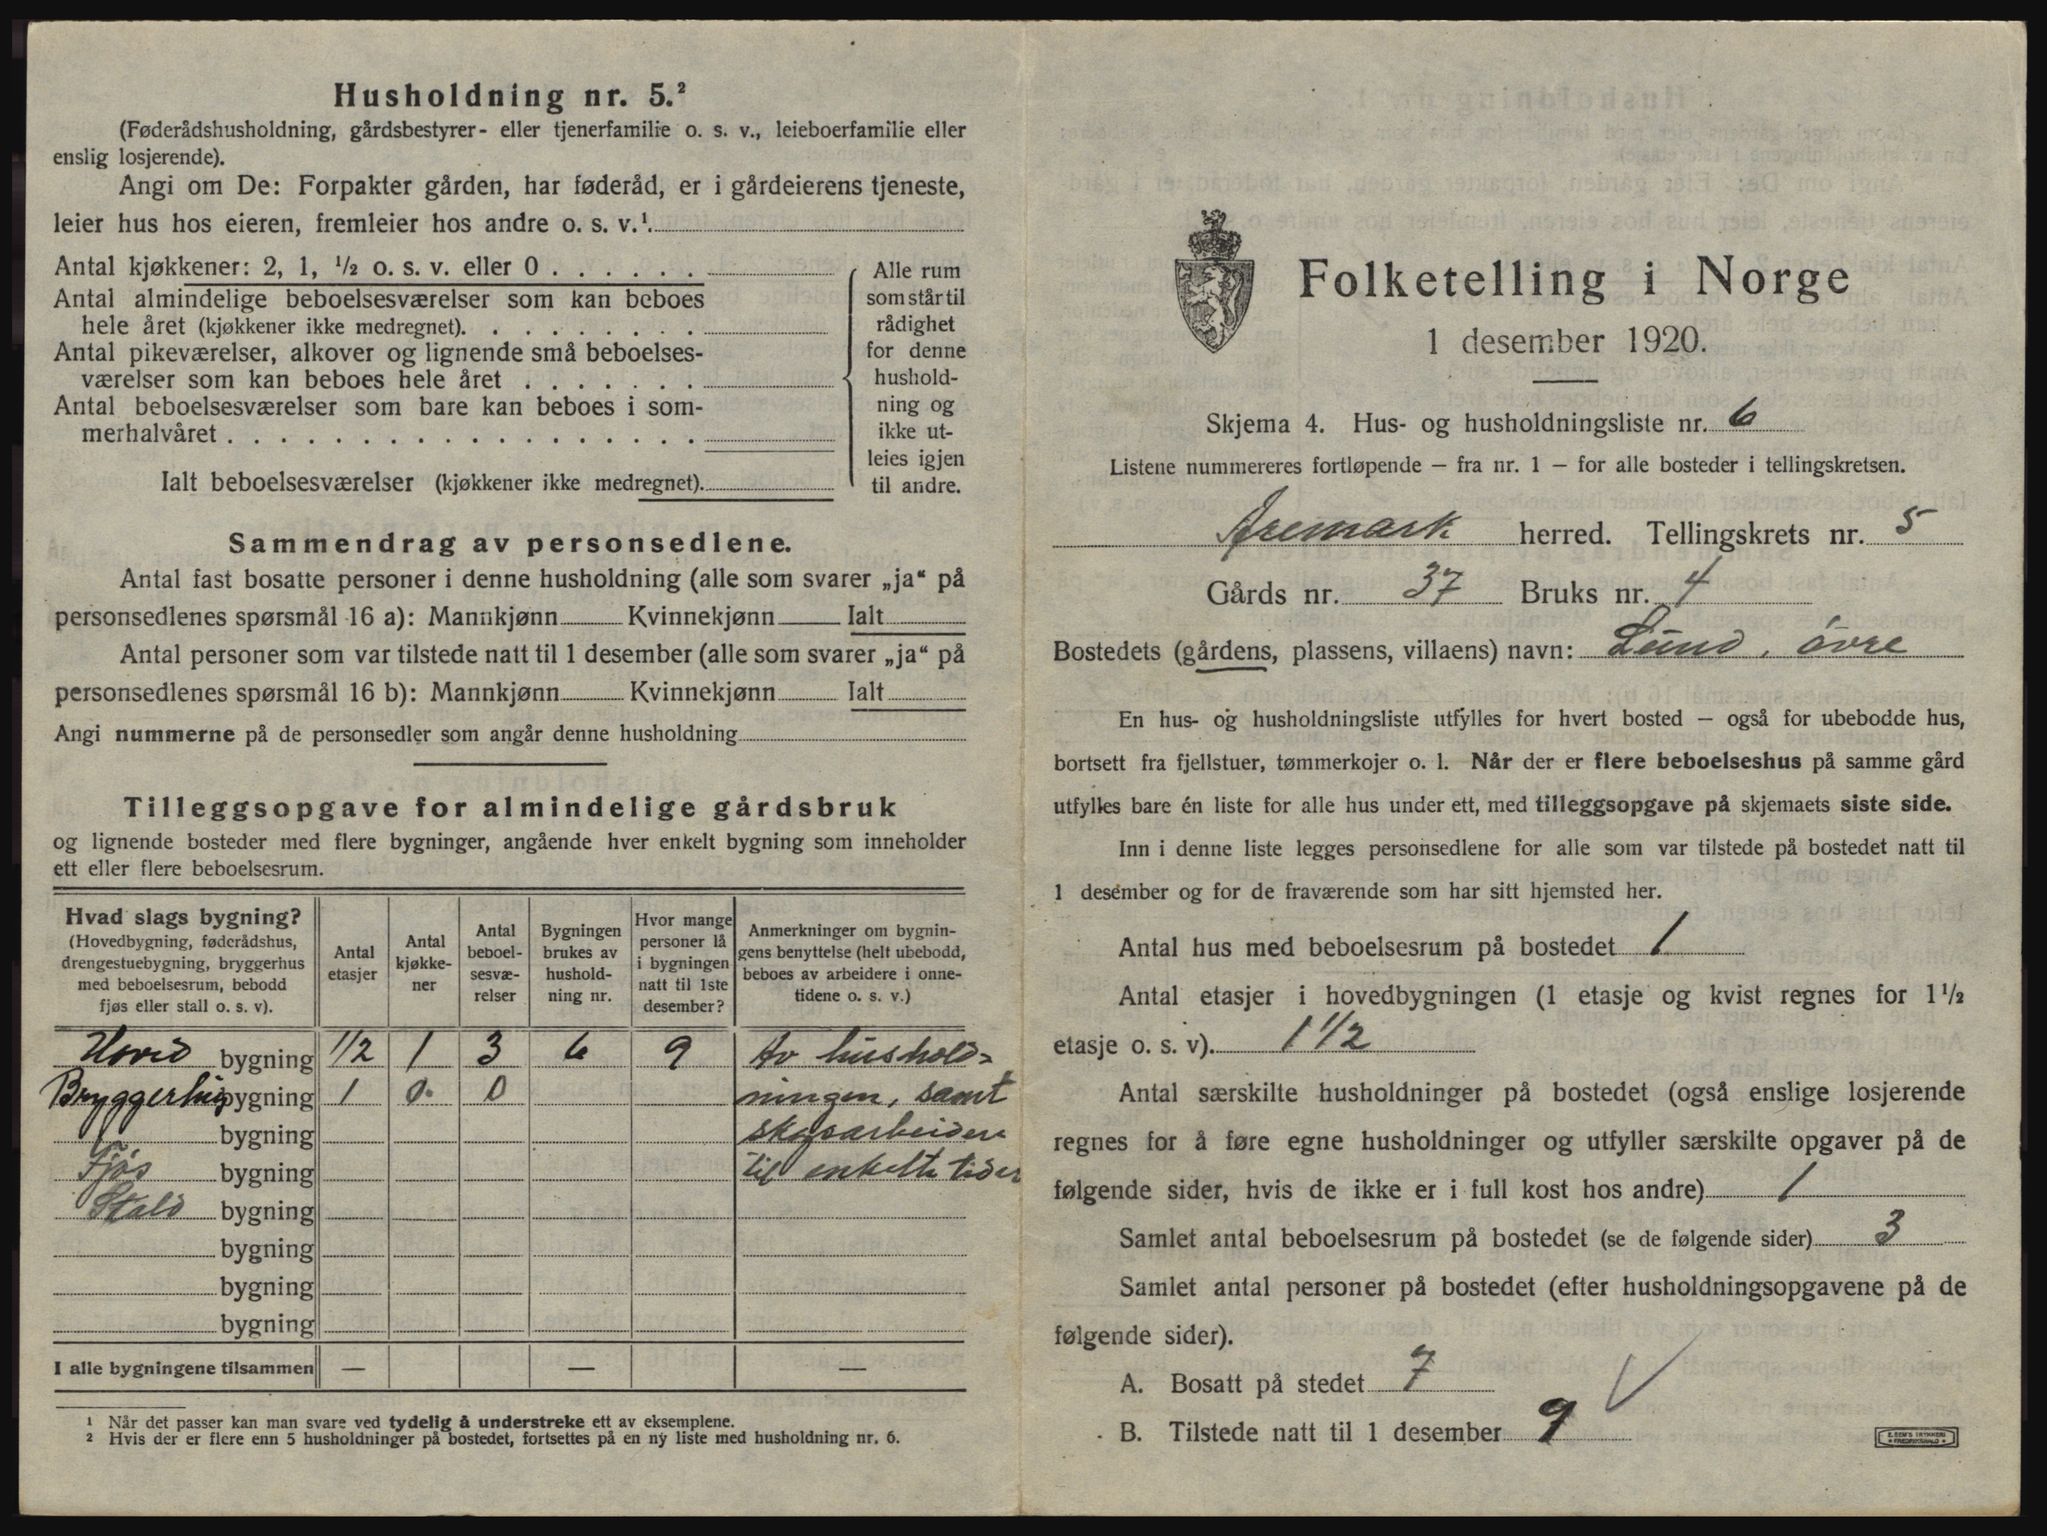 Husholdning nr. 5.²
(Føderådshusholdning, gårdsbestyrer- eller tjenerfamilie o. s. v., leieboerfamilie eller
enslig losjerende).
Angi om De: Forpakter gården, har føderåd, er i gårdeierens tjeneste,
leier hus hos eieren, fremleier hos andre o. s. v.¹
Antal kjøkkener: 2, 1, ½ o. s. v. eller 0 . . . . . .
Antal almindelige beboelsesværelser som kan beboes
hele året (kjøkkener ikke medregnet). . . . . . . . .
Antal pikeværelser, alkover og lignende små beboelses-
værelser som kan beboes hele året . . . . . . .
Antal beboelsesværelser som bare kan beboes i som-
merhalvåret . . . . . . . . . . . . . . . . . .
Ialt beboelsesværelser (kjøkkener ikke medregnet).
Alle rum
som står til
rådighet
for denne
hushold-
ning og
ikke ut-
leies igjen
til andre.
Sammendrag av personsedlene.
Antal fast bosatte personer i denne husholdning (alle som svarer „ja“ på
personsedlenes spørsmål 16 a): Mannkjønn Kvinnekjønn Ialt
Antal personer som var tilstede natt til 1 desember (alle som svarer „ja“ på
personsedlenes spørsmål 16 b): Mannkjønn Kvinnekjønn Ialt
Angi nummerne på de personsedler som angår denne husholdning
Tilleggsopgave for almindelige gårdsbruk
og lignende bosteder med flere bygninger, angående hver enkelt bygning som inneholder
ett eller flere beboelsesrum.
Hvad slags bygning?
(Hovedbygning, føderådshus,
drengestuebygning, bryggerhus
med beboelsesrum, bebodd
fjøs eller stall o. s. v).
Antal
etasjer
Antal
kjøkke-
ner
Antal
beboel-
sesvæ-
relser
Bygningen
brukes av
hushold-
ning nr.
Hvor mange
personer lå
i bygningen
natt til 1ste
desember?
Anmerkninger om bygnin-
gens benyttelse (helt ubebodd,
beboes av arbeidere i onne-
tidene o. s. v.)
Hoved bygning 1½ 1 3 6 9 Av hushold-
Bryggerhus bygning 1 0. 0 ningen, samt
bygning skogsarbeidere
Fjøs bygning til enkelte tider
Stald bygning
bygning
bygning
bygning
I alle bygningene tilsammen — — —
¹ Når det passer kan man svare ved tydelig å understreke ett av eksemplene.
² Hvis der er flere enn 5 husholdninger på bostedet, fortsettes på en ny liste med husholdning nr. 6.
Folketelling i Norge
1 desember 1920.
Skjema 4. Hus- og husholdningsliste nr. 6
Listene nummereres fortløpende – fra nr. 1 – for alle bosteder i tellingskretsen.
Aremark herred. Tellingskrets nr. 5
Gårds nr. 37 Bruks nr. 4
Bostedets (gårdens, plassens, villaens) navn: Lund, øvre
En hus- og husholdningsliste utfylles for hvert bosted – også for ubebodde hus,
bortsett fra fjellstuer, tømmerkojer o. l. Når der er flere beboelseshus på samme gård
utfylles bare én liste for alle hus under ett, med tilleggsopgave på skjemaets siste side.
Inn i denne liste legges personsedlene for alle som var tilstede på bostedet natt til
1 desember og for de fraværende som har sitt hjemsted her.
Antal hus med beboelsesrum på bostedet 1
Antal etasjer i hovedbygningen (1 etasje og kvist regnes for 1½
etasje o. s. v). 1½
Antal særskilte husholdninger på bostedet (også enslige losjerende
regnes for å føre egne husholdninger og utfyller særskilte opgaver på de
følgende sider, hvis de ikke er i full kost hos andre) 1
Samlet antal beboelsesrum på bostedet (se de følgende sider) 3
Samlet antal personer på bostedet (efter husholdningsopgavene på de
følgende sider).
A. Bosatt på stedet 7
B. Tilstede natt til 1 desember 9